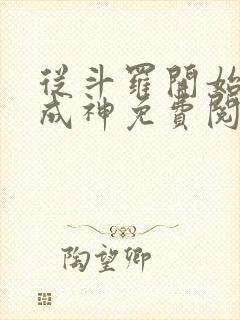 從斗羅開始
成神免費閱
陶望卿